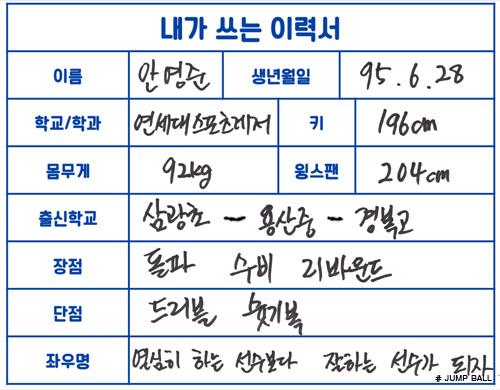 내가 쓰는 이력서
이름 안영준 생년월일 95.6.28
학교/학과 연세대스포츠레저 키 196cm
몸무게 92kg 윙스팬 204cm
출신학교 삼광초 - 용산중 - 경복고
장점 돌파 수비 리바운드
단점 드리블 슛기복
좌우명 열심히 하는 선수보다 잘하는 선수가 되자
# JUMP BALL